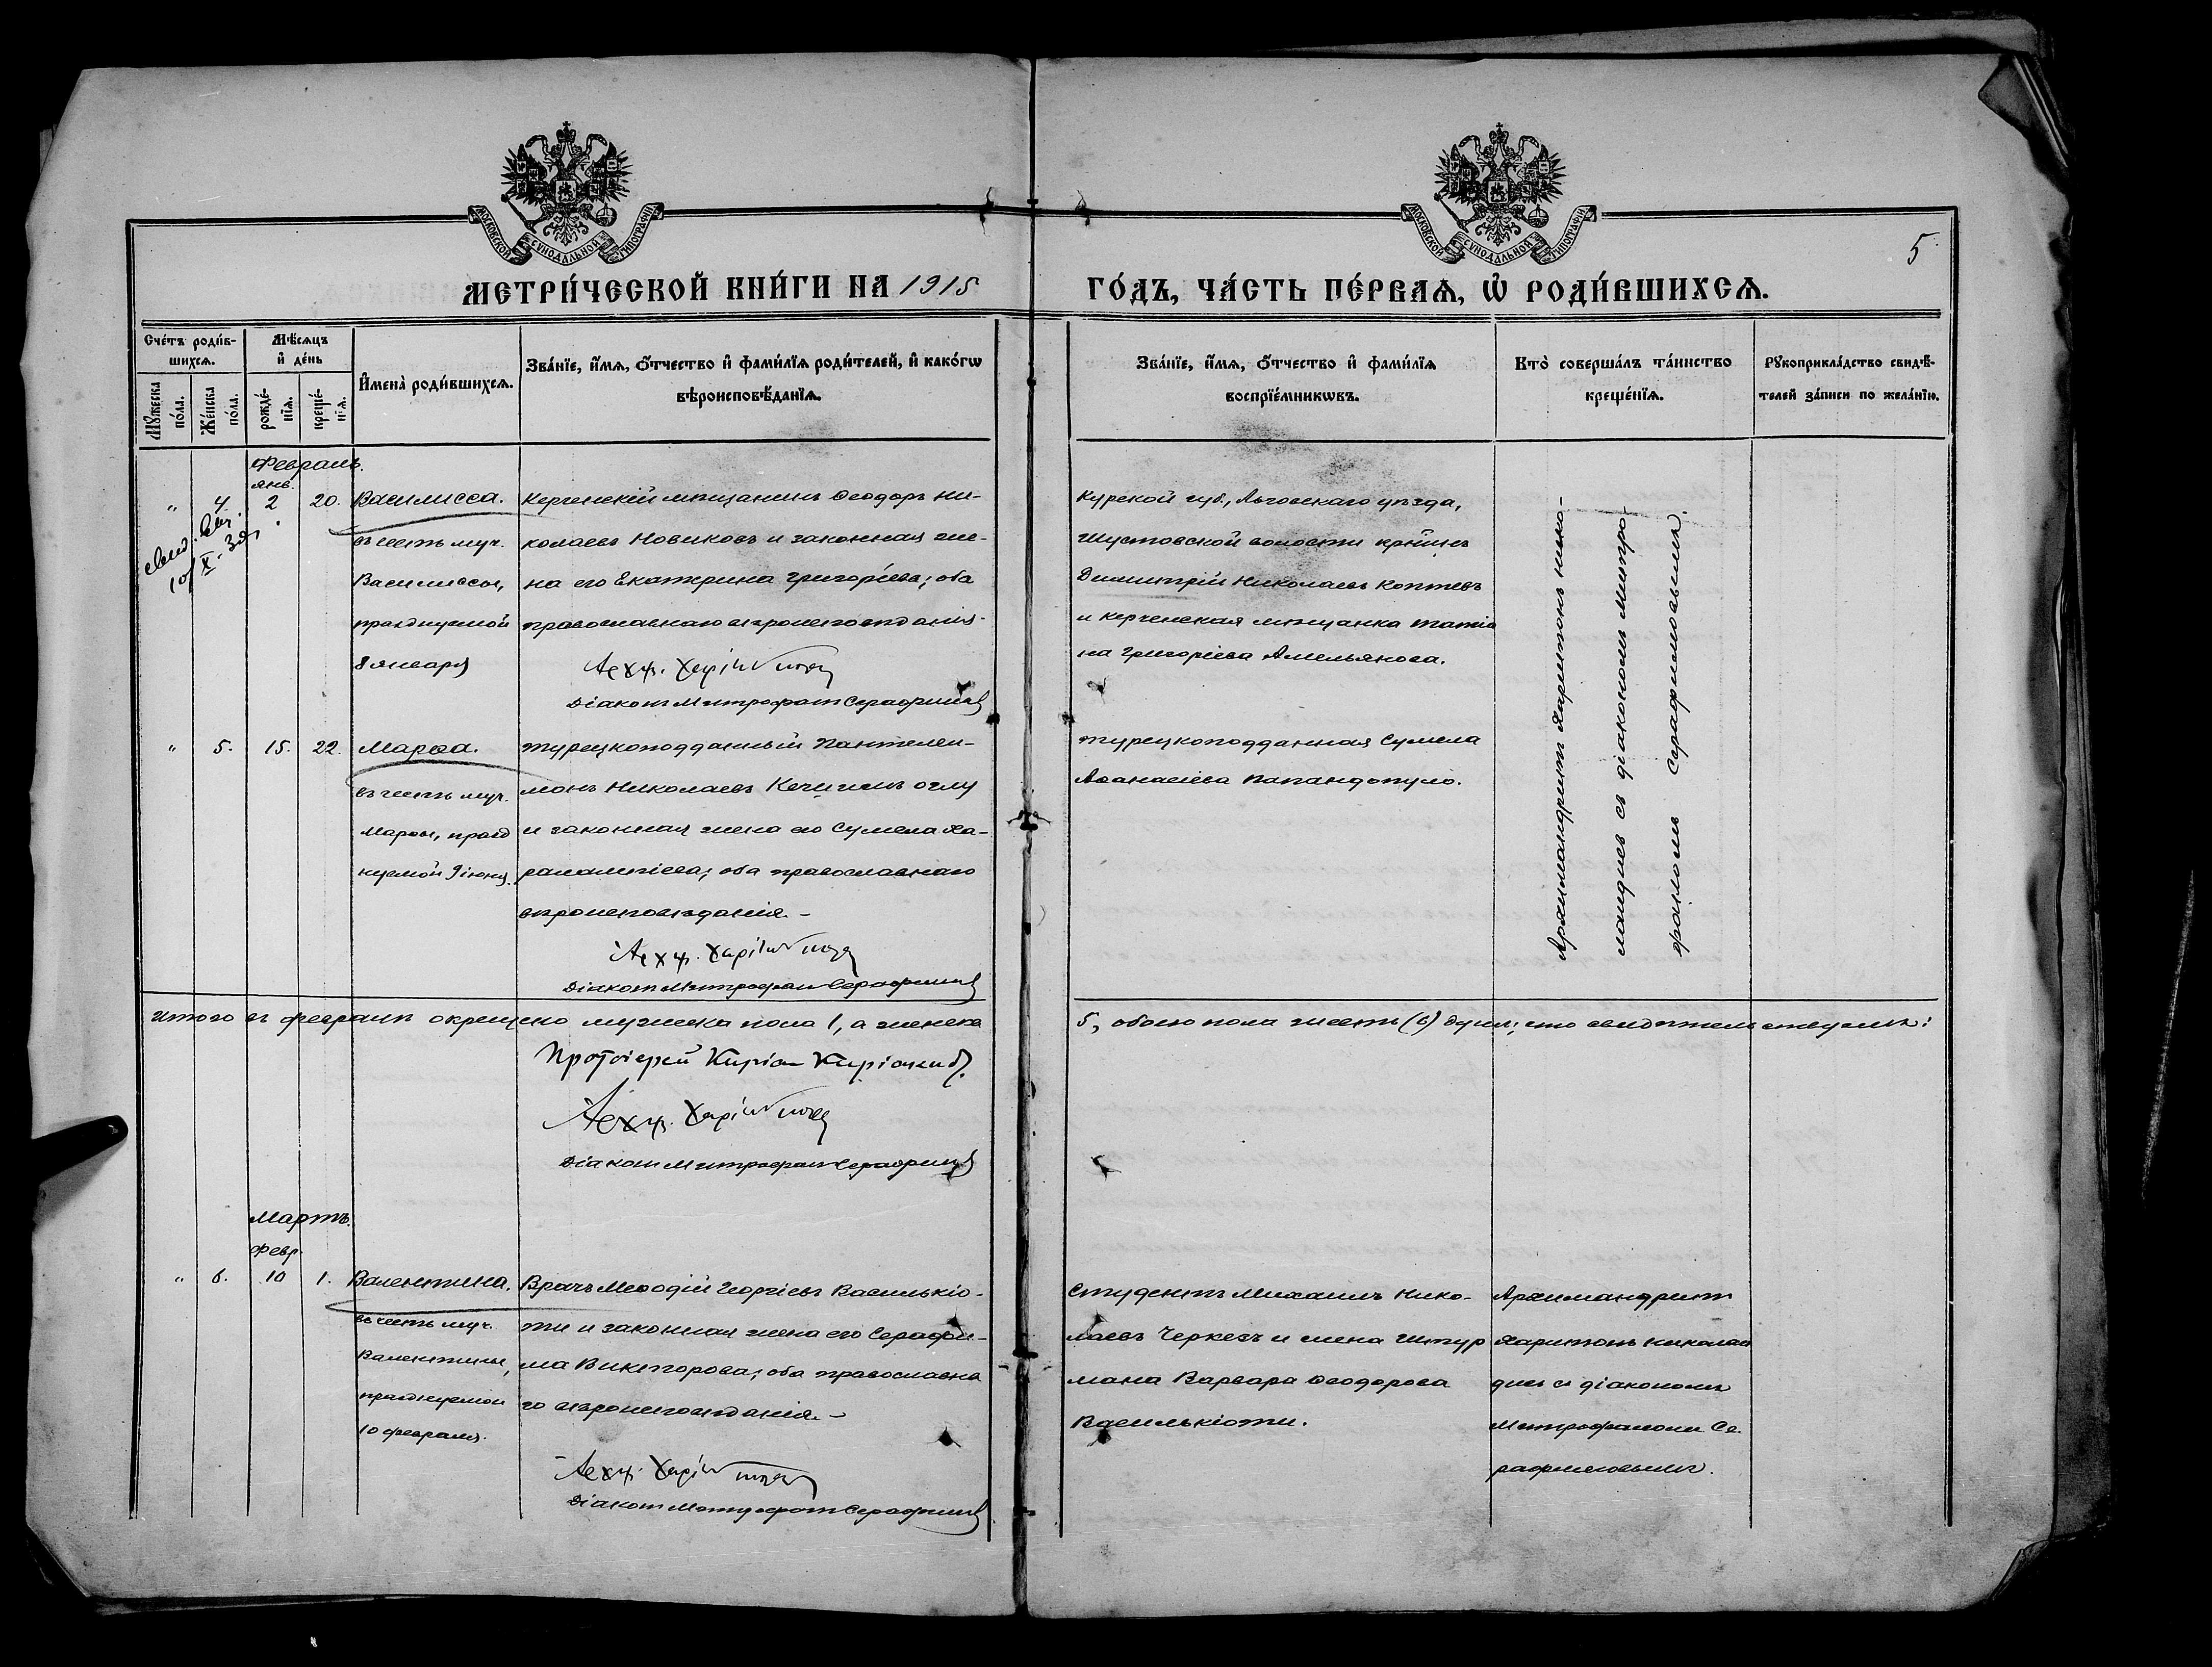 МОСКОВСКОЙ СУНОДАЛЬНОЙ ТИПОГРАФІИ
МОСКОВСКОЙ СУНОДАЛЬНОЙ ТИПОГРАФІИ
5
МЕТРИ́ЧЕСКОЙ КНИ́ГИ НА 1915
ГО́ДЪ, ЧА́СТЬ ПЕ́РВАѦ, Ѽ РОДИ́ВШИХСѦ.
Сче́тъ роди́в-
шихсѧ.
Мꙋ́жеска
по́ла.
Же́нска
по́ла.
Мѣ́сѧцъ
и҆ де́нь
рожде́-
нїѧ.
креще́-
нїѧ.
И҆мена̀ роди́вшихсѧ.
Зва́нїе, и҆́мѧ, ѻ҆́тчество и҆ фами́лїѧ роди́телей, и҆ како́гѡ
вѣроисповѣ́данїѧ.
Зва́нїе, и҆́мѧ, ѻ҆́тчество и҆ фами́лїѧ
воспрїе́мникѡвъ.
Кто̀ соверша́лъ та́инство
креще́нїѧ.
Рꙋкоприкла́дство свидѣ́-
телей за́писи по жела́нїю.
Февраль.
янв.
" 4. 2 20. Василисса.
въ честь муч.
Василиссы,
празднуемой
8 января
Керченскій мѣщанинъ Ѳеодоръ Ни-
колаевъ Новиковъ и законная же-
на его Екатерина Григорьева; оба
православнаго вѣроисповѣданія.
Діаконъ Митрофанъ Серафимов
Курской губ., Льговскаго уѣзда,
Шустовской волости кр-нинъ
Димитрій Николаевъ Коптевъ
и керченская мѣщанка Татіа
на Григоріева Амельянова.
Архимандритъ Харитонъ Нико-
лаидисъ съ діакономъ Митро-
фаномъ Серафимовымъ.
" 5. 15. 22. Марѳа.
въ честь муч.
Марѳы, празд
нуемой 9 іюня.
Турецкоподданный Пантелеи-
монъ Николаевъ Кечигимъ оглу
и законная жена его Сумела Ха-
ралампіева; оба православнаго
вѣроисповѣданія. -
Діаконъ Митрофанъ Серафимов
Турецкоподданная Сумела
Аѳанасіева Папандопуло.
Итого въ февралѣ окрещено мужеска пола 1, а женска
5, обоего пола шесть (6) душъ; что свидѣтельствуемъ:
Протоіерей
Діаконъ Митрофанъ Серафимов
Мартъ.
Февр.
" 6. 10 1. Валентина.
въ честь муч.
Валентины,
празднуемой
10 февраля.
Врачъ Меѳодій Георгіевъ Василькіо-
ти и законная жена его Серафи-
ма Викторова; оба православна
го вѣроисповѣданія. -
Діаконъ Митрофанъ Серафимов
Студентъ Михаилъ Нико-
лаевъ Черкезъ и жена штур
мана Варвара Ѳеодорова
Василькіоти.
Архимандритъ
Харитонъ Николаи
дисъ съ діакономъ
Митрофаномъ Се-
рафимовымъ.